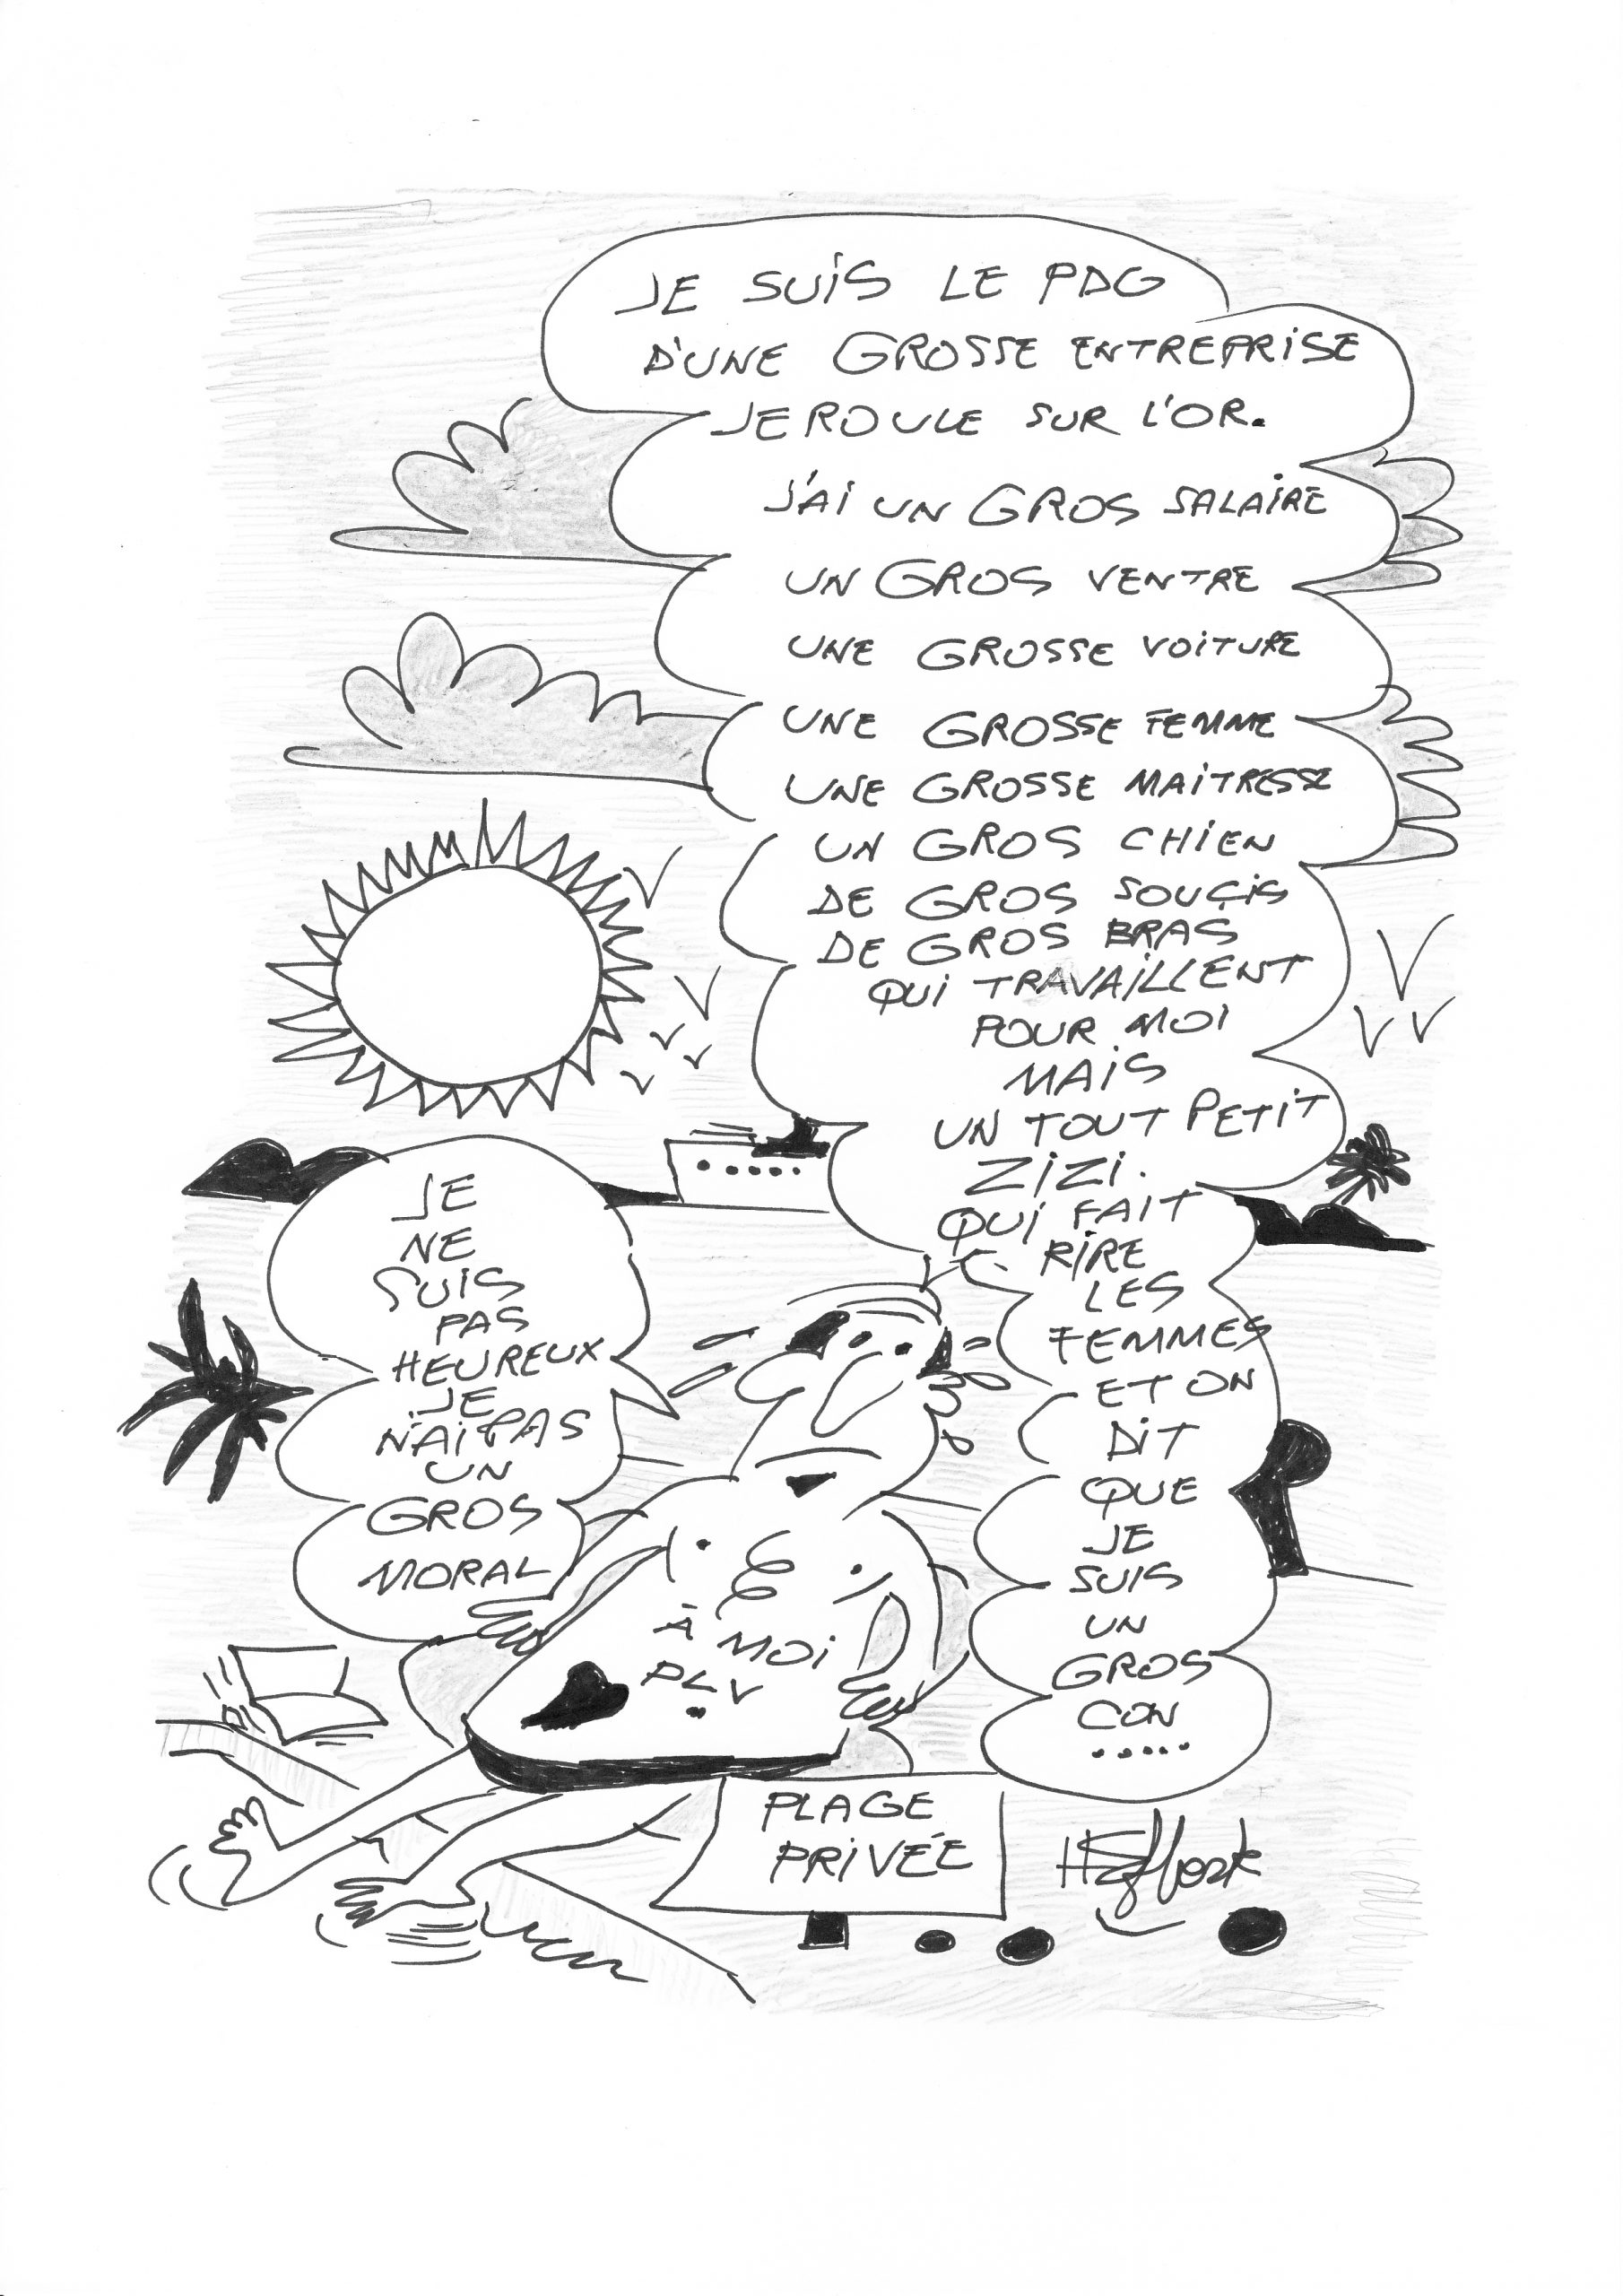 JE SUIS LE PDG
D'UNE GROSSE ENTREPRISE
JE ROULE SUR L'OR.
J'AI UN GROS SALAIRE
UN GROS VENTRE
UNE GROSSE VOITURE
UNE GROSSE FEMME
UNE GROSSE MAITRESSE
UN GROS CHIEN
DE GROS SOUÇIS
DE GROS BRAS
QUI TRAVAILLENT
POUR MOI
MAIS
UN TOUT PETIT
ZIZI.
QUI FAIT
RIRE
LES
FEMMES
ET ON
DIT
QUE
JE
SUIS
UN
GROS
CON
.....
JE
NE
SUIS
PAS
HEUREUX
JE
N'AI PAS
UN
GROS
MORAL
À MOI
PLV
PLAGE
PRIVÉE